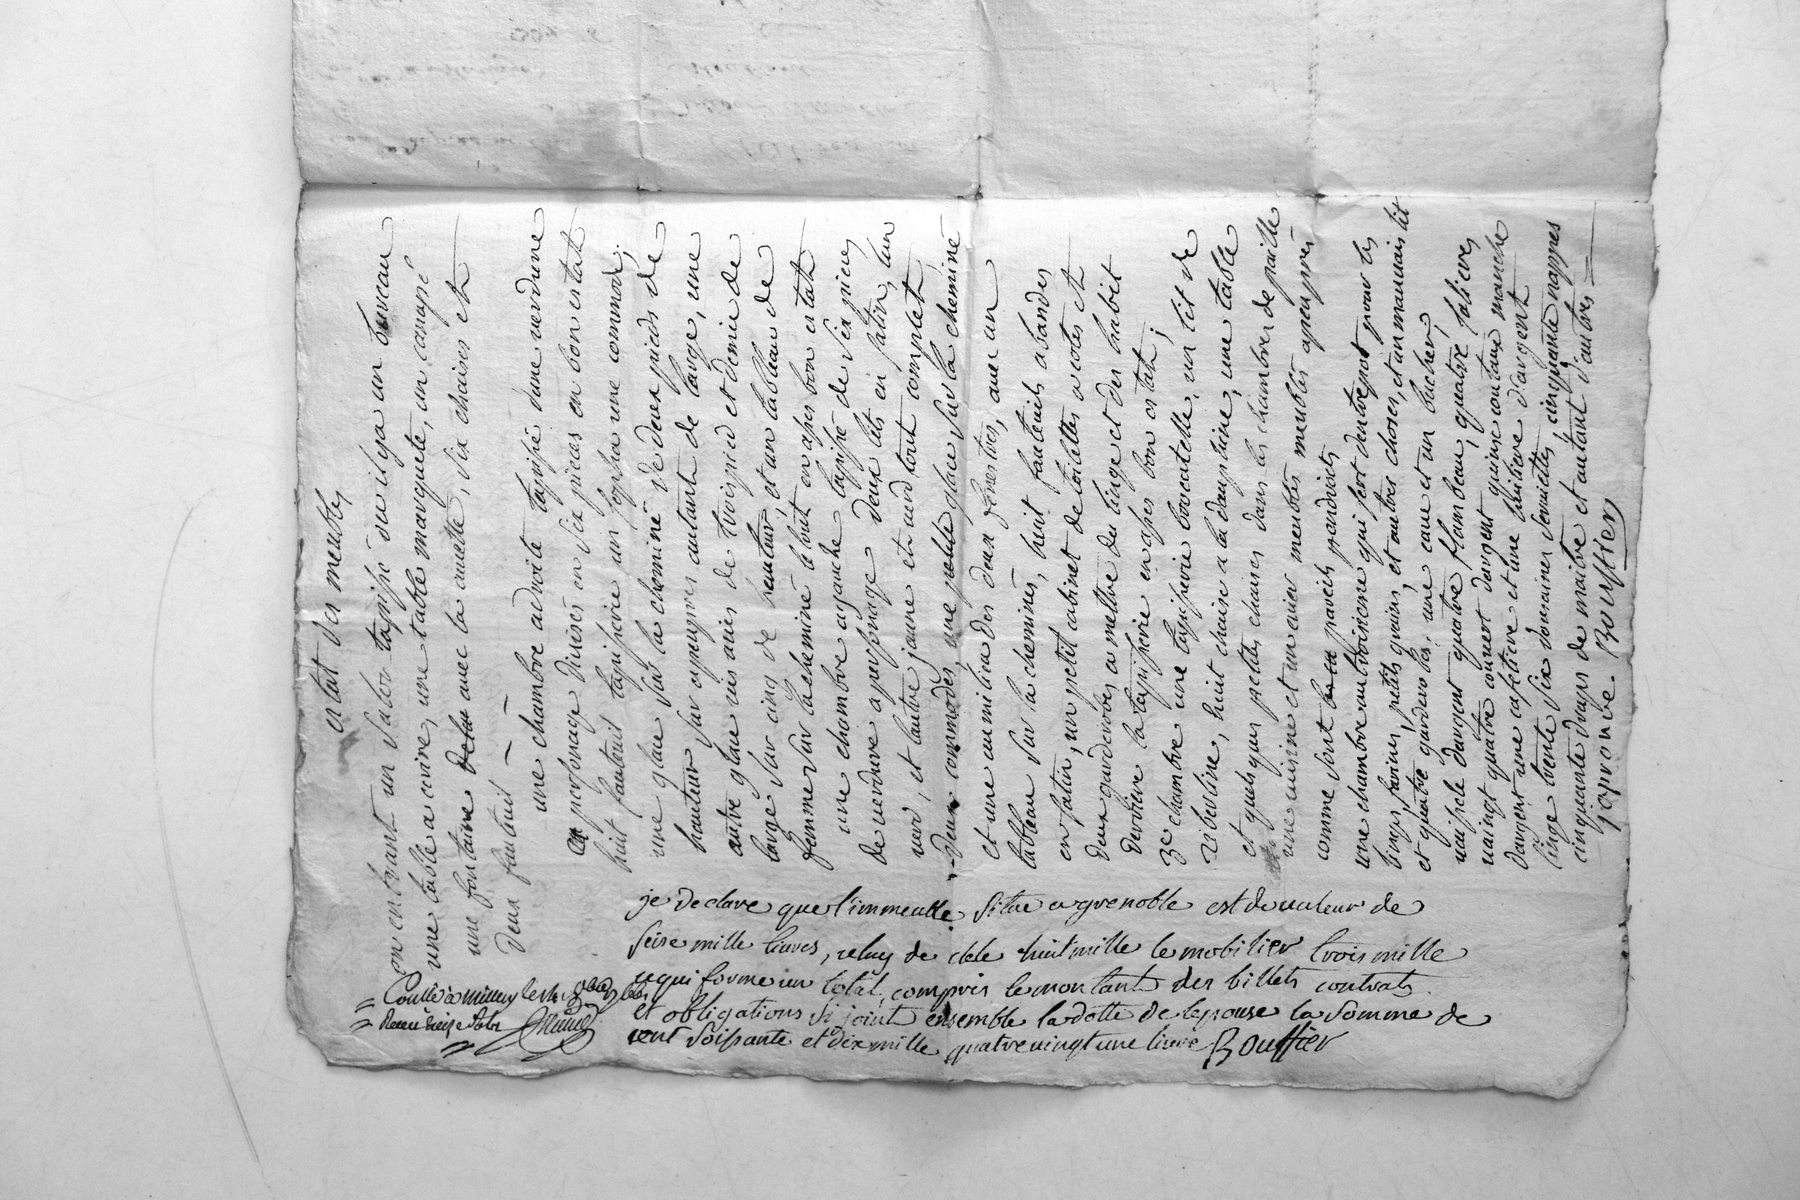 estat des meubles
en entrant un salon tapissé ou il y a un bureau
une table a ecrire, une table marquetée, un canapé
une fontaine avec la cuvette, six chaises et
deux fauteuil —
une chambre adroite tapissé dune verdure
en personage divisés en six pieces en bon estat
huit fauteuil tapisserie un sopha une commode,
une glace sur la cheminé de deux pieds de
hauteur sur apeupres autant de large, une
autre glace vis avis de trois pied et demie de
large sur cinq de hauteur, et un tableau de
femme sur la cheminé le tout en asses bon estat
une chambre agauche tapissé de six pieces
de verdure a personage deux lits en satin, lun
verd, et lautre jaune et verd tout complet,
deux commodes, une petite glace sur la cheminé
et une au milieu des deux fenestres, avec un
tableau sur la cheminée, huit fauteuils a bandes
en satin, un petit cabinet de toilettes a cotes et
deux garderobes a mettre du linge et des habit
derriere la tapisserie en asses bon estat;
3e chambre une tapisserie brocatelle, un lit de
huit chaise a la dauphine, une table
et quelques petites chaises dans les chambres de paille
une cuisine et un evier meubles apeuprès
comme sont pareils
une chambre au troisieme qui sert dentrepos pour les
linges, farines, petits grains, et autres choses, et un mauvais lit
et quatre garderobes, une cave et un bucher;
vaissele dargent quatre flambeau, quatre salieres
vaingt quatre couvert dargent quinse coutaux manche
dargent une cafetiere et une laitiere dargent
linge trente six dousaines serviettes, cinquante nappes
cinquante draps de maitre et autant d'autres —
japrouve Bouffier
je declare que l'immeuble situe a grenoble est de valeur de
seise mille livres, celuy de huit mille le mobilier trois mille
ce qui forme un total, compris le montant des billets contrats
et obligations si joint ensemble la dotte de lepouse la somme de
cent soissante et dix mille quatre vingt une livre Bouffier
Conttrollé a
seise sols